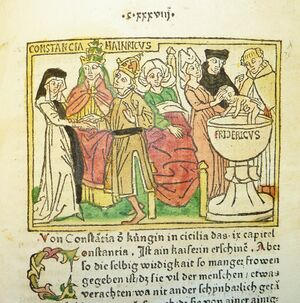 ·C· xxxviij·
CONSTANCIA HAINRICUS
FRIDERICUS
Von Constācia ð küngin in cicilia das ·ix· capitel
Constancia. Ist ain kaiserin erschinē. Aber
so die selbig wirdikait so manger frowen
gegeben ist dz sie vil der menschen / etwas
verachten wa nit ander schynbarlich